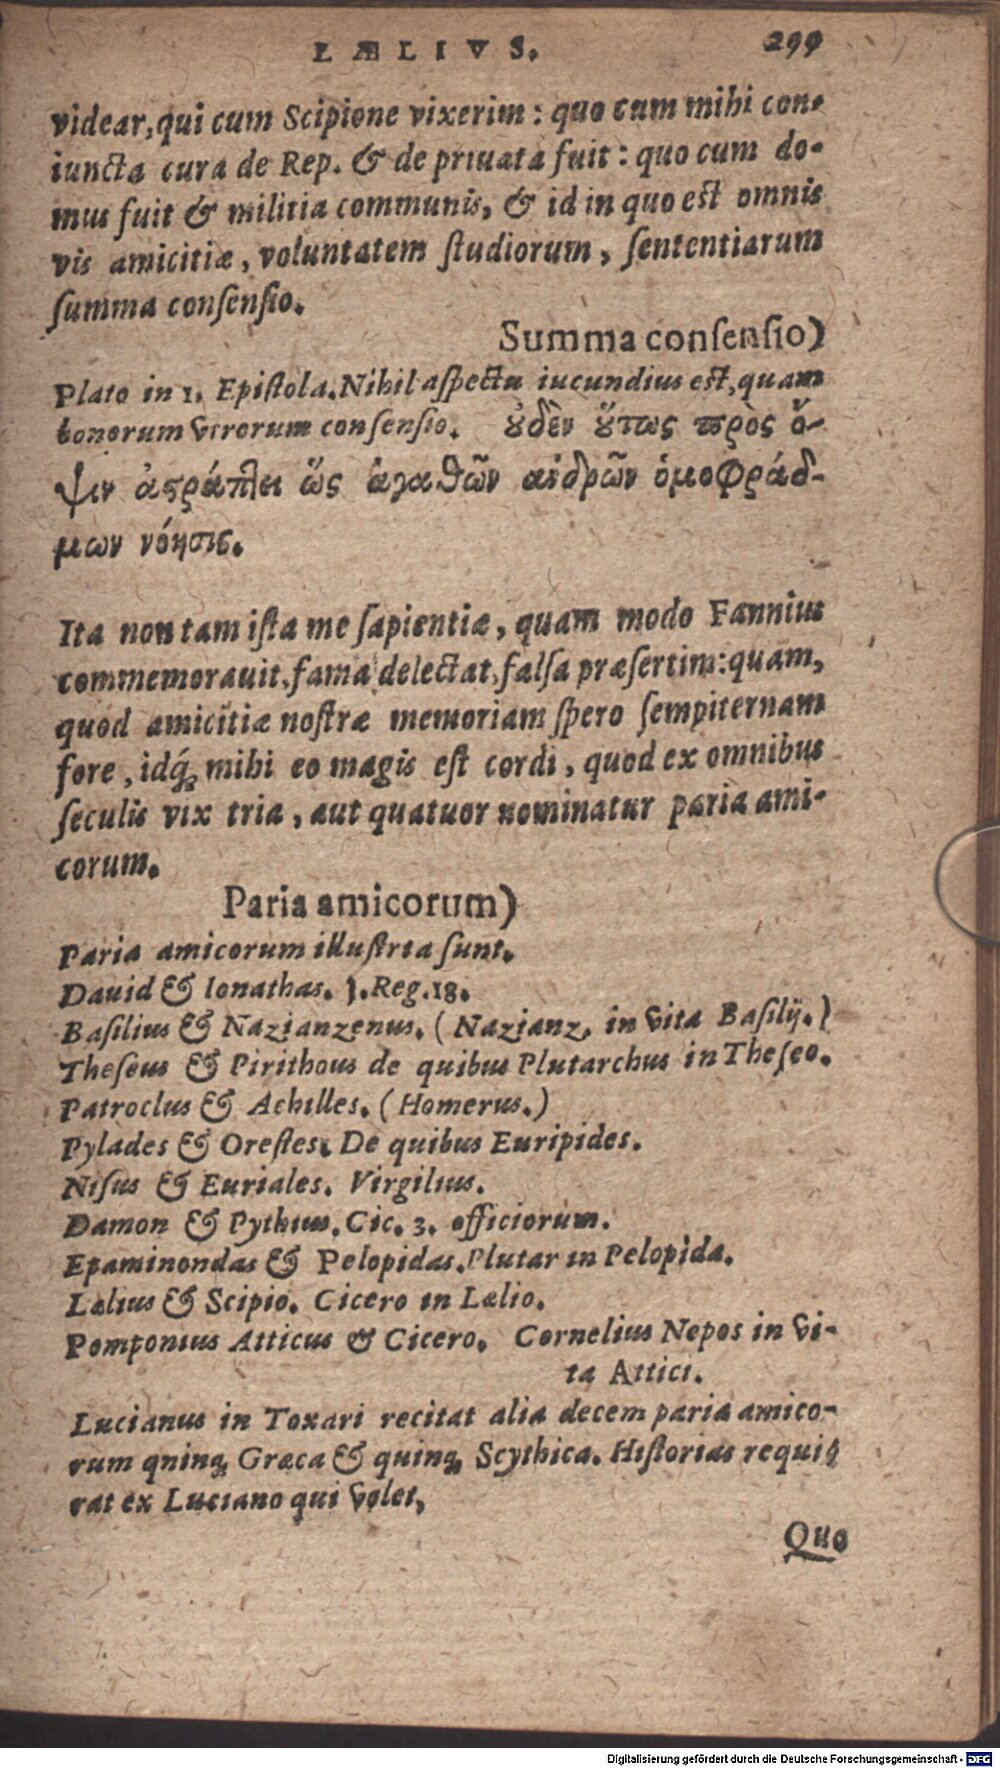 LÆLIVS. 299
videar, qui cum Scipione vixerim: quo cum mihi con-
iuncta cura de Rep. & de priuata fuit: quo cum do-
mus fuit & militia communis, & id in quo est omnis
vis amicitiæ, voluntatem ſtudiorum, ſententiarum
ſumma conſenſio.
Summa conſenſio)
Plato in 1. Epiſtola. Nihil aſpectu iucundius est, quam
bonorum virorum conſenſio. ȣ̓δὲν ȣ̔́τως πρὸς ὄ-
ψιν ἀϛράπλει ὥς ἀγαθῶν ανδρῶν ὁμοφράδ-
μων νόησις.
Ita non tam iſta me ſapientiæ, quam modo Fannius
commemorauit, fama delectat, falſa præſertim: quam,
quod amicitiæ noſtræ memoriam ſpero ſempiternam
fore, idq́; mihi eo magis eſt cordi, quod ex omnibus
ſeculis vix tria, aut quatuor nominatur paria ami-
corum.
Paria amicorum)
Paria amicorum illuſtria ſunt.
Dauid & Ionathas. 1. Reg. 18.
Baſilius & Nazianzenus. (Nazianz. in vita Baſilij.)
Theſeus & Pirithous de quibus Plutarchus in Theſeo.
Patroclus & Achilles. (Homerus.)
Pylades & Oreſtes. De quibus Euripides.
Niſus & Euriales. Virgilius.
Damon & Pythius. Cic. 3. officiorum.
Epaminondas & Pelopidas. Plutar in Pelopida.
Lælius & Scipio. Cicero in Lælio.
Pomponius Atticus & Cicero. Cornelius Nepos in vi-
ta Attici.
Lucianus in Toxari recitat alia decem paria amico-
rum qninq; Græca & quinq; Scythica. Hiſtorias requi-
rat ex Luciano qui volet,
Quo
Digitalisierung gefördert durch die Deutsche Forschungsgemeinschaft - DFG